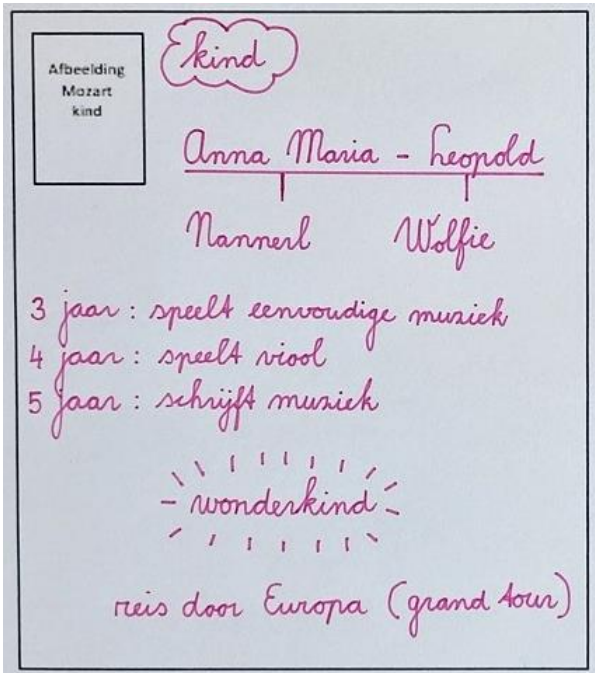 Afbeelding
Mozart
kind
kind
Anna Maria - Leopold
Nannerl Wolfie
3 jaar : speelt eenvoudige muziek
4 jaar : speelt viool
5 jaar : schrijft muziek
- wonderkind -
reis door Europa (grand tour)